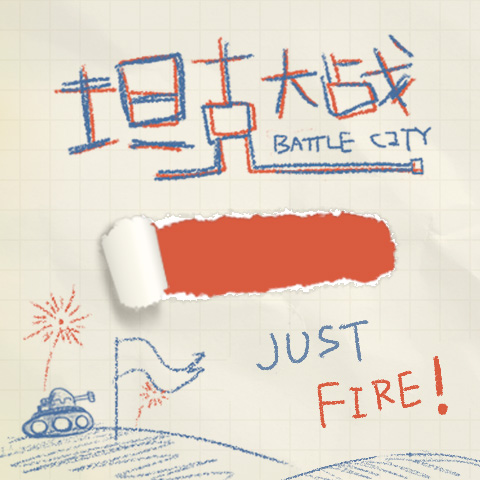 坦克大战
BATTLE CITY
JUST
FIRE!